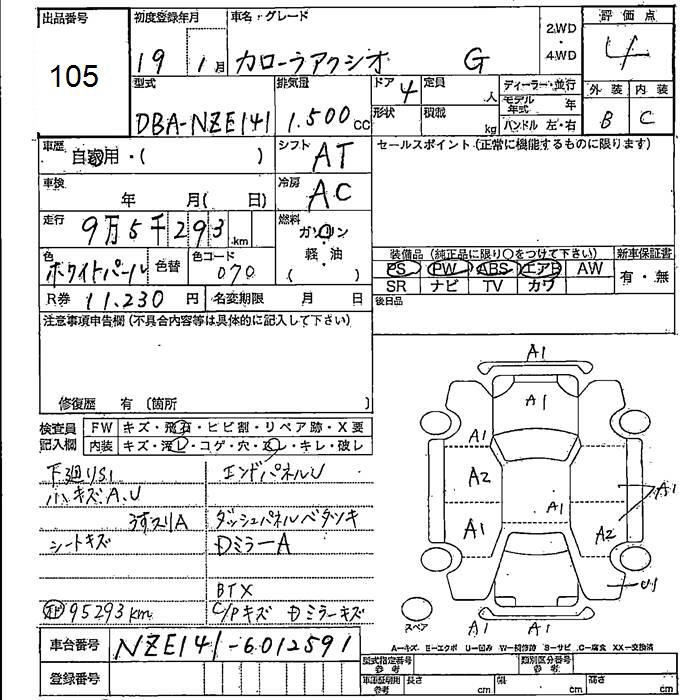 出品番号
105
初度登録年月
19 1月
車名・グレード
カローラアクシオ G
2WD
・
4WD
評価点
4
外装 内装
B C
型式
DBA-NZE141
排気量
1.500cc
ドア 4
形状
定員 人
積載 kg
ディーラー・並行
モデル年式 年
ハンドル 左・右
車歴
自家用・( )
シフト AT
車検
年 月( 日)
冷房 AC
走行
9万5千293km
燃料
ガソリン
・
軽・油
( )
色
ホワイトパール
色替
色コード
070
R券 11.230円
名変期限 月 日
セールスポイント(正常に機能するものに限ります)
装備品(純正品に限り○をつけて下さい)
PS PW ABS エアB AW
SR ナビ TV カワ
新車保証書
有・無
後日品
注意事項申告欄(不具合内容等は具体的に記入して下さい)
修復歴 有 (箇所 )
検査員
記入欄
FW キズ・飛石・ヒビ割・リペア跡・X要
内装 キズ・汚レ・コゲ・穴・スレ・キレ・破レ
下廻りS1
小キズA.U
うすスリA
シートキズ
95293km
エンドパネルU
ダッシュパネルベタツキ
ミラーA
BTX
C/Pキズ ミラーキズ
車台番号 NZE141-6012591
登録番号
A1
A1
A1
A2
A1
A1
A1
A2
U1
A1
A1
スペア
A-キズ E-エクボ U-凹み W-補修跡 S-サビ C-腐食 XX-交換済
型式指定番号
参考
類別区分番号
参考
車庫証明用
参考
長さ cm
幅 cm
高さ cm